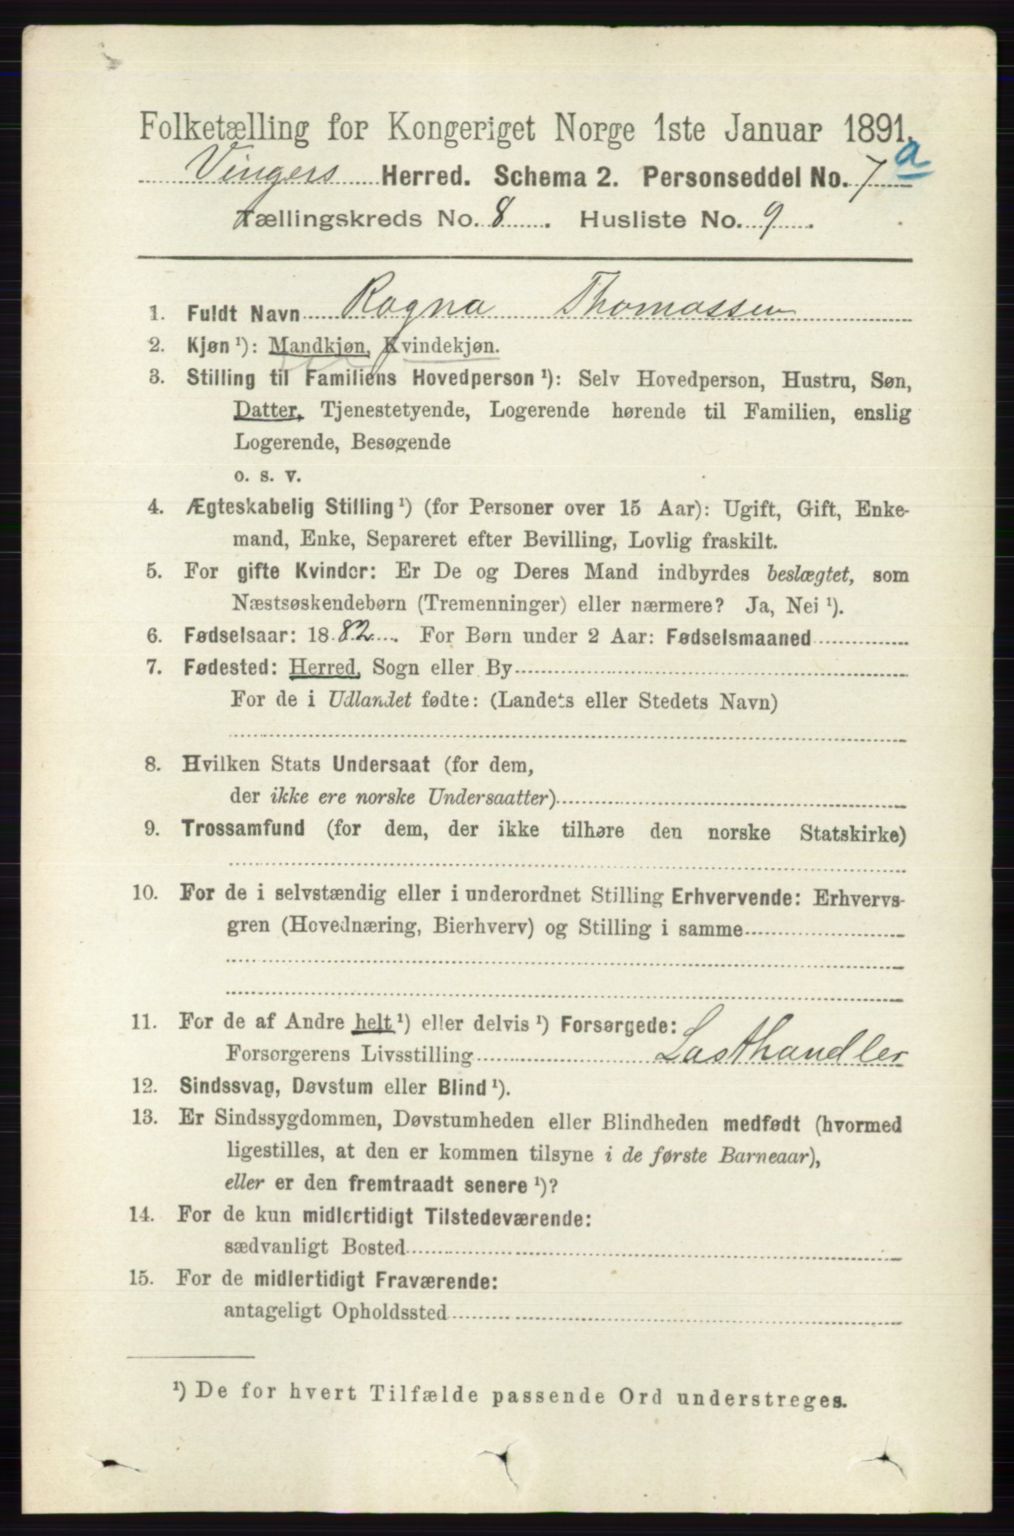 Folketælling for Kongeriget Norge 1ste Januar 1891.
Vingers Herred. Schema 2. Personseddel No. 7 a
Tællingskreds No. 8. Husliste No. 9.
1. Fuldt Navn Ragna Thomassen
2. Kjøn ¹): Mandkjøn, Kvindekjøn.
3. Stilling til Familiens Hovedperson ¹): Selv Hovedperson, Hustru, Søn,
Datter, Tjenestetyende, Logerende hørende til Familien, enslig
Logerende, Besøgende
o. s. v.
4. Ægteskabelig Stilling ¹) (for Personer over 15 Aar): Ugift, Gift, Enke-
mand, Enke, Separeret efter Bevilling, Lovlig fraskilt.
5. For gifte Kvinder: Er De og Deres Mand indbyrdes beslægtet, som
Næstsøskendebørn (Tremenninger) eller nærmere? Ja, Nei ¹).
6. Fødselsaar: 1882. For Børn under 2 Aar: Fødselsmaaned
7. Fødested: Herred, Sogn eller By
For de i Udlandet fødte: (Landets eller Stedets Navn)
8. Hvilken Stats Undersaat (for dem,
der ikke ere norske Undersaatter)
9. Trossamfund (for dem, der ikke tilhøre den norske Statskirke)
10. For de i selvstændig eller i underordnet Stilling Erhvervende: Erhvervs-
gren (Hovednæring, Bierhverv) og Stilling i samme
11. For de af Andre helt ¹) eller delvis ¹) Forsørgede:
Forsørgerens Livsstilling Lasthandler
12. Sindssvag, Døvstum eller Blind ¹).
13. Er Sindssygdommen, Døvstumheden eller Blindheden medfødt (hvormed
ligestilles, at den er kommen tilsyne i de første Barneaar),
eller er den fremtraadt senere ¹)?
14. For de kun midlertidigt Tilstedeværende:
sædvanligt Bosted
15. For de midlertidigt Fraværende:
antageligt Opholdssted
¹) De for hvert Tilfælde passende Ord understreges.